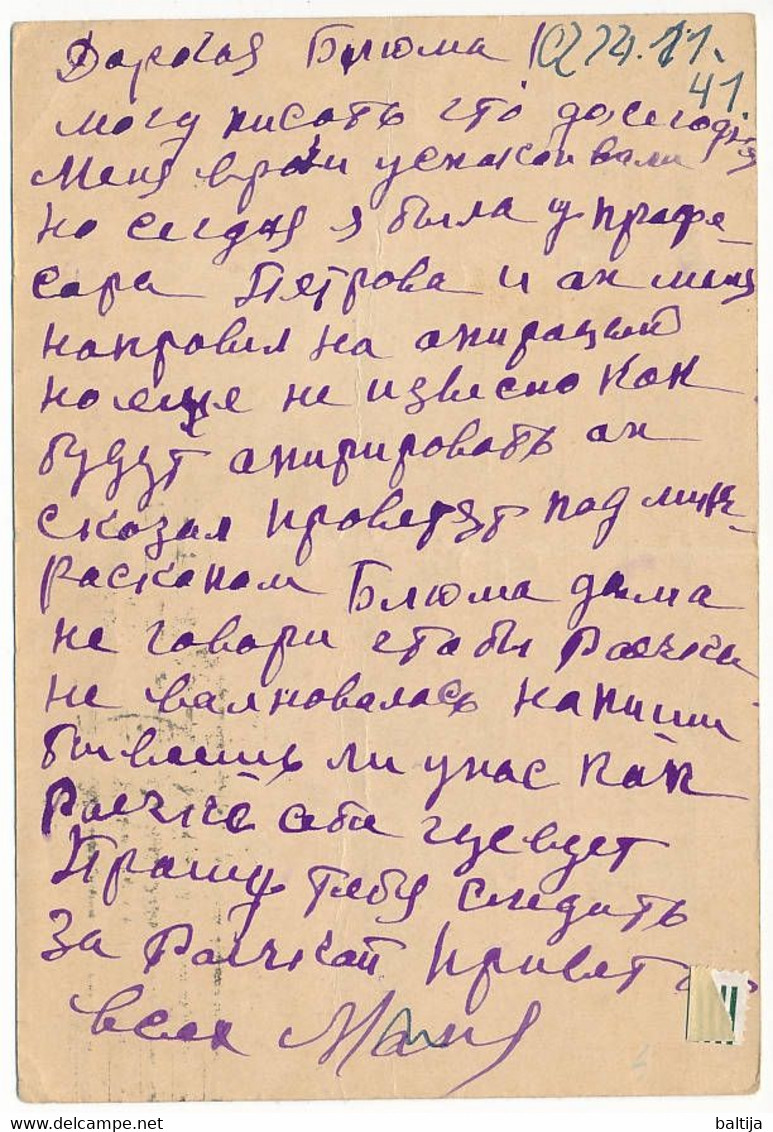 Дорогая Блюма! 24.11.
41.
могу писать что до сегодня
меня врачи успакоивали
но сегдня я была у профе-
сара Петрова и ан меня
направил на апирацый
но еще не извесно как
будут апирировать ан
сказал проверят под мик-
раскопам Блюма дама
не говори стобы Раечка
не валновалась напиши
бываешь ли у нас как
Раечка себя чуевует
Прашу тебя следить
за Раечкай Привет
всем Маня
baltija